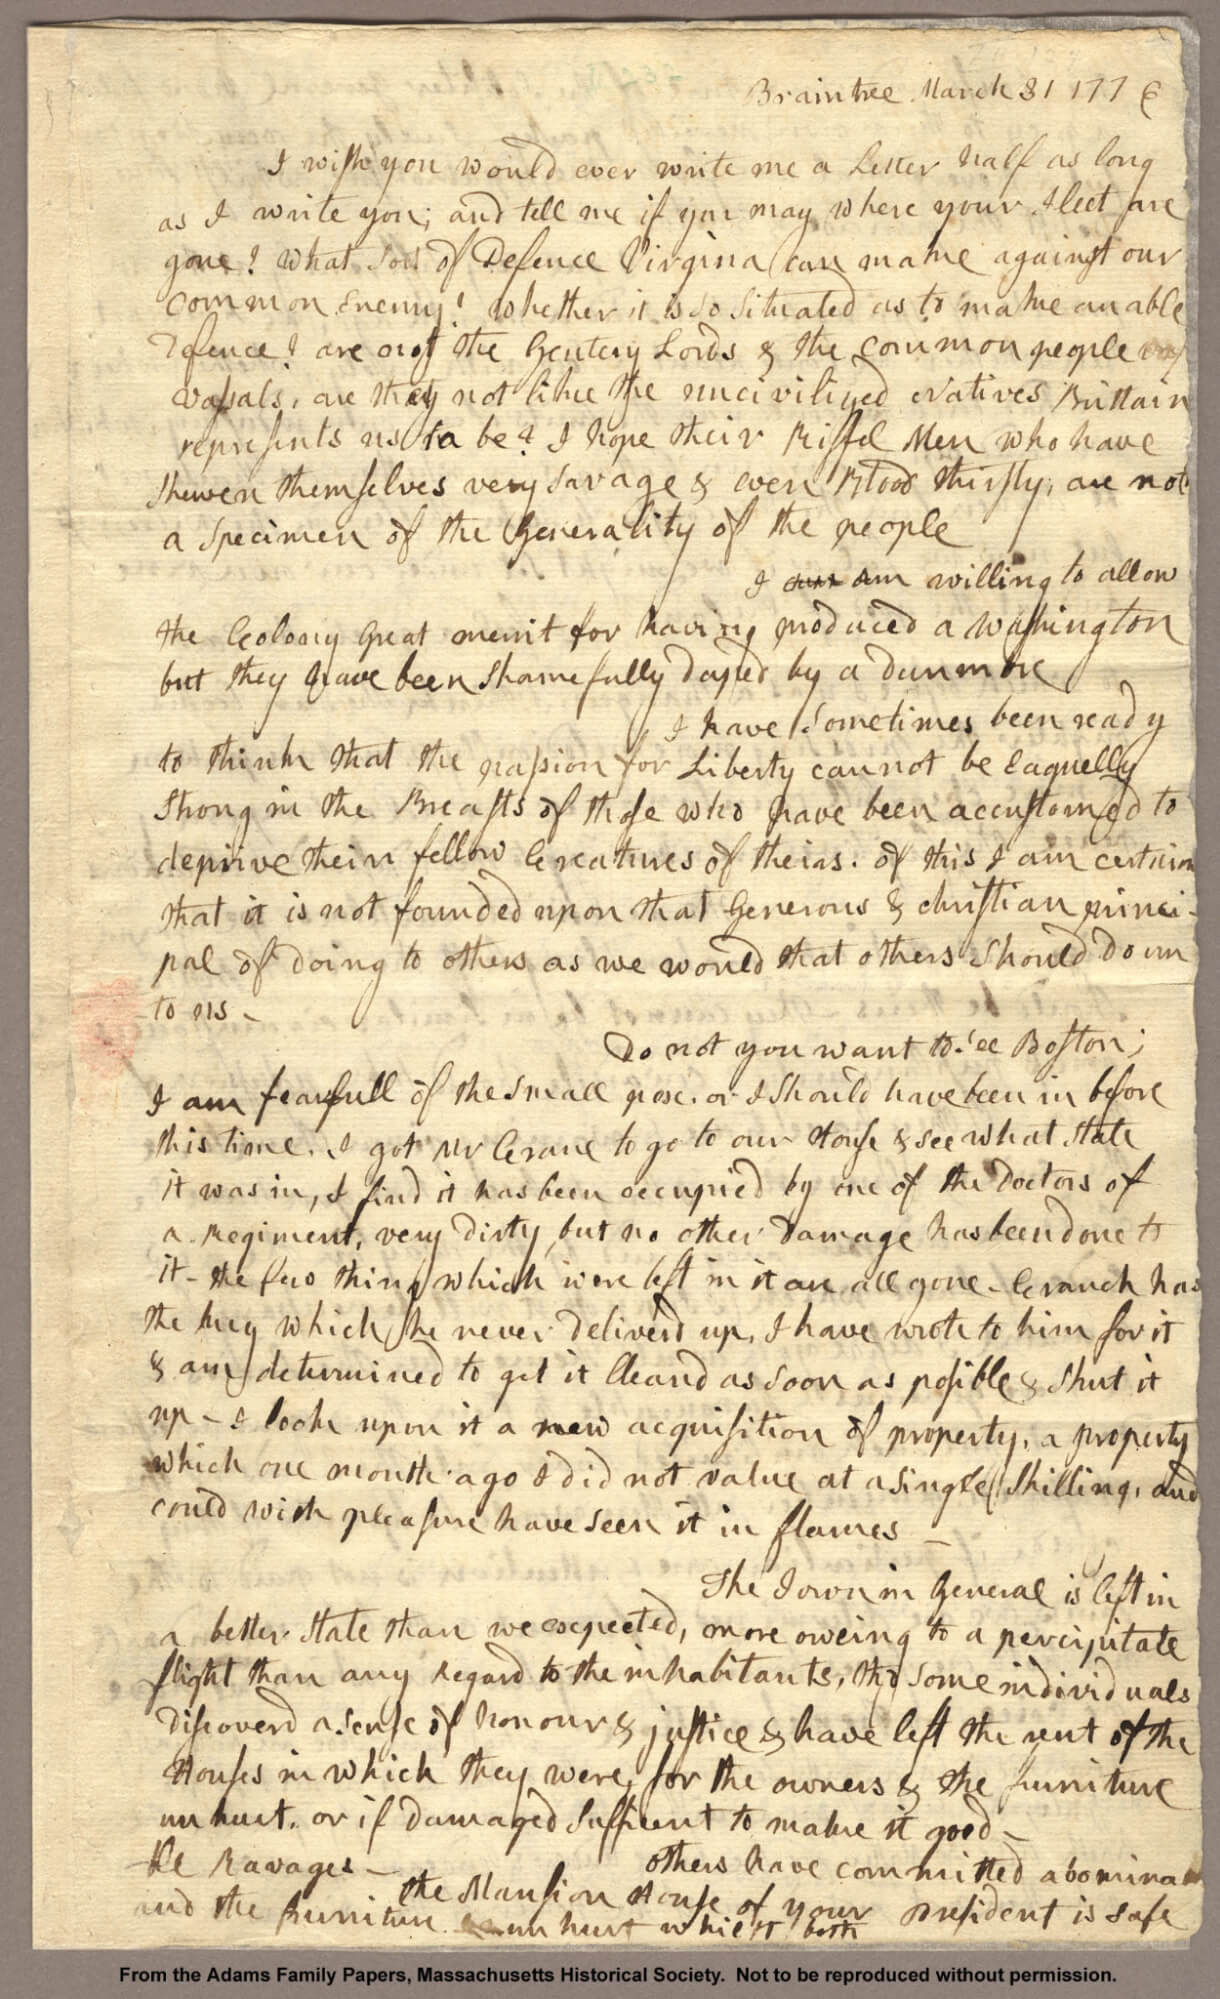 Braintree March 31 1776
I wish you would ever write me a Letter half as long
as I write you; and tell me if you may where your Fleet are
gone? What sort of Defence Virginia can make against our
common Enemy? Whether it is so situated as to make an able
Defence? are not the Gentery Lords & the common people
vassals, are they not like the uncivilized Natives Brittain
represents us to be? I hope their Riffel Men who have
shewen themselves very savage & even Blood thirsty; are not
a specimen of the Generality of the people
I am willing to allow
the Colony great merrit for having produced a Washington
but they have been shamefully duped by a Dunmore
I have sometimes been ready
to think that the passion for Liberty cannot be Eaquelly
Strong in the Breasts of those who have been accustomed to
deprive their fellow Creatures of theirs. Of this I am certain
that it is not founded upon that Generous & christian princi-
pal of doing to others as we would that others should do un
to us -
Do not you want to see Boston;
I am fearfull of the small pox, or I should have been in before
this time. I got Mr Crane to go to our House & see what state
it was in, I find it has been occupied by one of the Doctors of
a Regiment, very dirty, but no other damage has been done to
it - the few things which were left in it are all gone - Cranch has
the key which he never deliverd up, I have wrote to him for it
& am determined to get it cleand as soon as posible & shut it
up - I look upon it a new acquisition of property, a property
which one month ago I did not value at a single Shilling, and
could with pleasure have seen it in flames -
The Town in General is left in
a better state than we expected, more oweing to a percipitate
flight than any Regard to the inhabitants, tho some individuals
discoverd a sense of honour & justice & have left the rent of the
Houses in which they were, for the owners & the furniture
unhurt, or if damaged sufficent to make it good -
others have committed abomina
ble Ravages -
the Mansion House of your President is safe
and the furniture unhurt whilst both
From the Adams Family Papers, Massachusetts Historical Society. Not to be reproduced without permission.